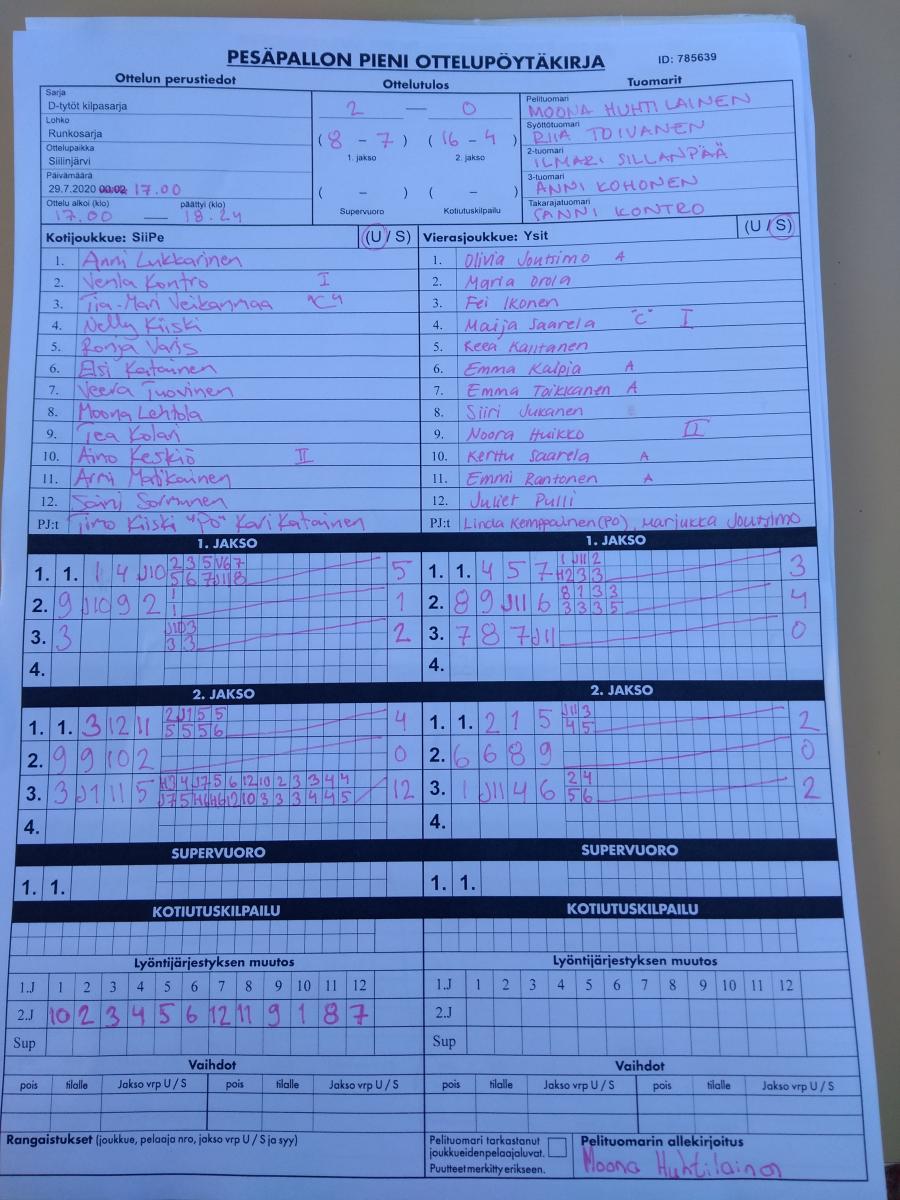 PESÄPALLON PIENI OTTELUPÖYTÄKIRJA ID: 785639
Ottelun perustiedot Ottelutulos Tuomarit
Sarja
D-tytöt kilpasarja
Lohko
Runkosarja
Ottelupaikka
Siilinjärvi
Päivämäärä
29.7.2020 00.02 17.00
Ottelu alkoi (klo) päättyi (klo)
17.00 — 18.24
2 — 0
( 8 - 7 ) ( 16 - 4 )
1. jakso 2. jakso
( - ) ( - )
Supervuoro Kotiutuskilpailu
Pelituomari
MOONA HUHTILAINEN
Syöttötuomari
RIIA TOIVANEN
2-tuomari
ILMARI SILLANPÄÄ
3-tuomari
ANNI KOHONEN
Takarajatuomari
SANNI KONTRO
Kotijoukkue: SiiPe (U / S)
1. Anni Lukkarinen
2. Venla Kontro I
3. Tia-Mari Veikanmaa "C"
4. Nelly Kiiski
5. Ronja Varis
6. Elsi Katainen
7. Veera Tuovinen
8. Moona Lehtola
9. Tea Kolari
10. Aino Keskiö II
11. Anni Matikainen
12. Saini Sormunen
PJ:t Timo Kiiski "PO" Kari Katainen
Vierasjoukkue: Ysit (U / S)
1. Olivia Joutsimo A
2. Maria Orola
3. Fei Ikonen
4. Maija Saarela "C" I
5. Reea Kantanen
6. Emma Kalpia A
7. Emma Toikkanen A
8. Siiri Jukanen
9. Noora Huikko II
10. Kerttu Saarela A
11. Emmi Rantonen A
12. Juliet Pulli
PJ:t Linda Kemppainen (PO), Marjukka Joutsimo
1. JAKSO
1. 1. 1 4 J10 2 3 5 V6 7 5
5 6 7 J11 8
2. 9 J10 9 2 1 1
1
3. 3 J10 3 2
3 3
4.
1. JAKSO
1. 1. 4 5 7 1 J11 2 3
H2 3 3
2. 8 9 J11 6 8 1 3 3 4
3 3 3 5
3. 7 8 7 J11 0
4.
2. JAKSO
1. 1. 3 12 11 2 J1 5 5 4
5 5 5 6
2. 9 9 10 2 0
3. 3 J1 11 5 H3 4 J7 5 6 12 10 2 3 3 4 4 12
J7 5 H6 H6 12 10 3 3 3 4 4 5
4.
2. JAKSO
1. 1. 2 1 5 J11 3 2
4 5
2. 6 6 8 9 0
3. 1 J11 4 6 2 4 2
5 6
4.
SUPERVUORO
1. 1.
SUPERVUORO
1. 1.
KOTIUTUSKILPAILU
KOTIUTUSKILPAILU
Lyöntijärjestyksen muutos
1.J 1 2 3 4 5 6 7 8 9 10 11 12
2.J 10 2 3 4 5 6 12 11 9 1 8 7
Sup
Lyöntijärjestyksen muutos
1.J 1 2 3 4 5 6 7 8 9 10 11 12
2.J
Sup
Vaihdot
pois tilalle Jakso vrp U / S pois tilalle Jakso vrp U / S
Vaihdot
pois tilalle Jakso vrp U / S pois tilalle Jakso vrp U / S
Rangaistukset (joukkue, pelaaja nro, jakso vrp U / S ja syy)
Pelituomari tarkastanut
joukkueidenpelaajaluvat.
Puutteet merkitty erikseen.
Pelituomarin allekirjoitus
Moona Huhtilainen